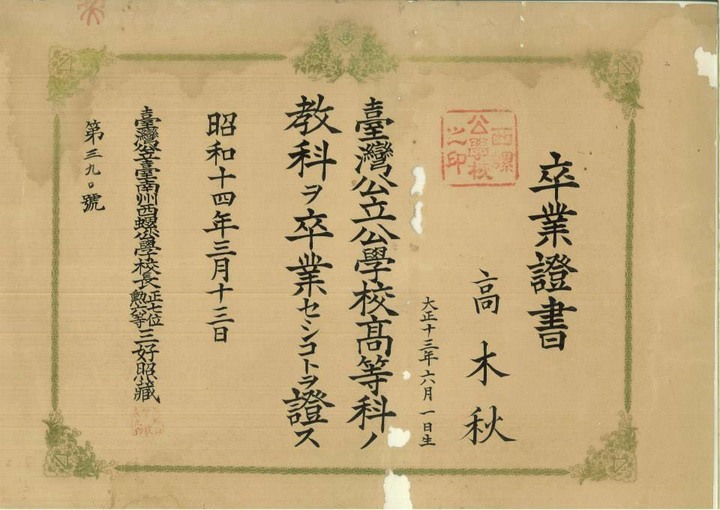 卒業證書
西螺
公學校
之印
高木秋
大正十三年六月一日生
臺灣公立公學校高等科ノ
教科ヲ卒業セシコトヲ證ス
昭和十四年三月十三日
臺灣公立臺南州西螺公學校長正七位勲六等三好昭藏
第三九〇號